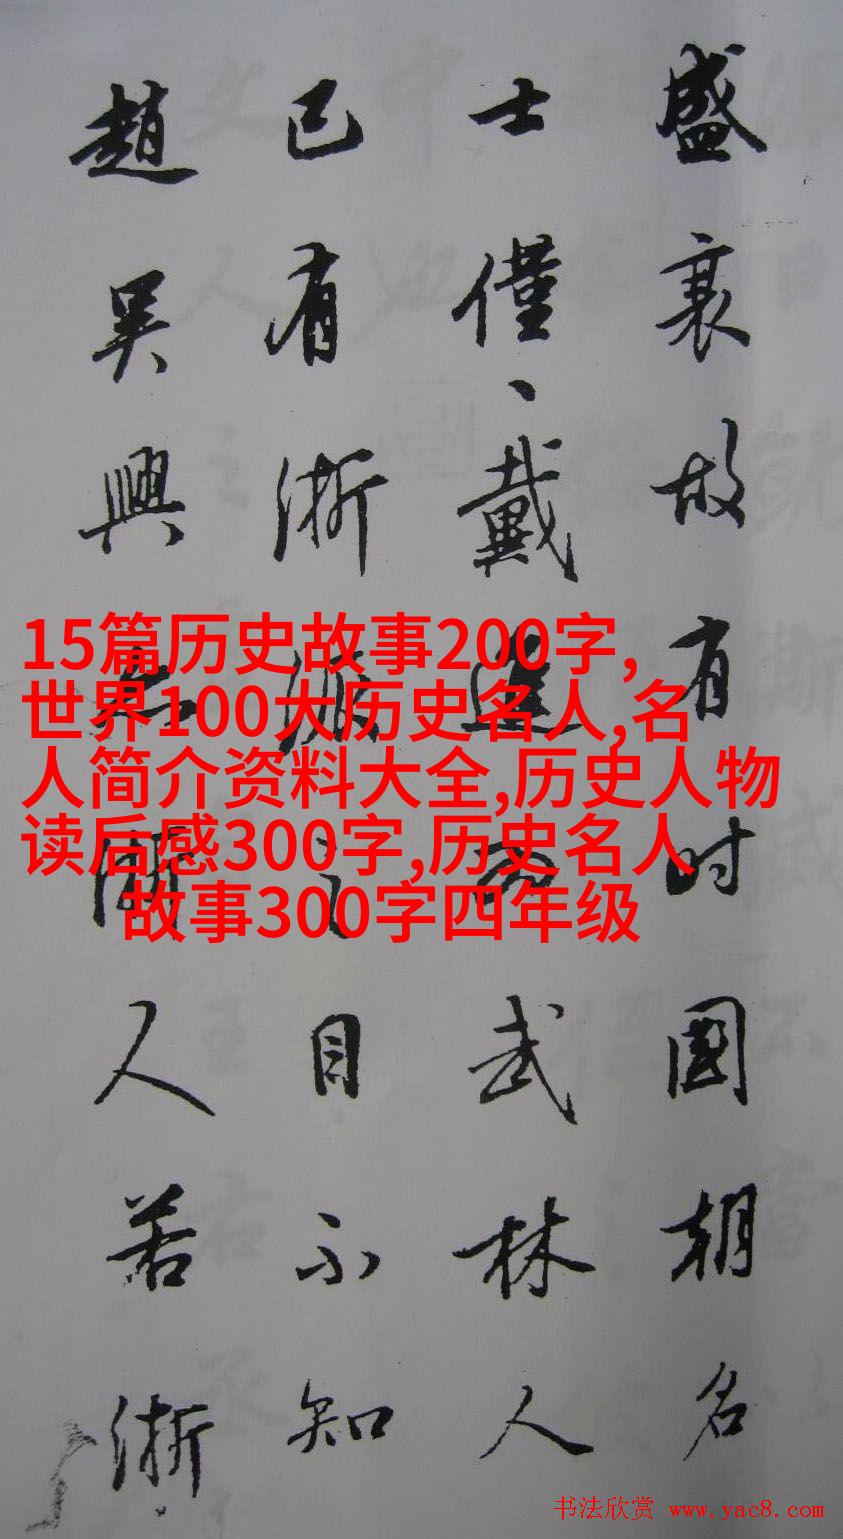 15篇历史故事200字,
世界100大历史名人,名
人简介资料大全,历史人物
读后感300字,历史名人
故事300字四年级
盛衰故有时國朝名
士僅、戴進武林人
已有浙派之目不知
趙吳興亦浙人若浙
书法欣赏 www.yac8.com